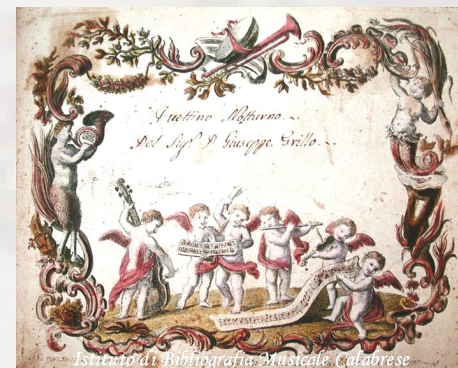 Duettino Notturno
Del Sigʳ D Giuseppe Grillo
Istituto di Bibliografia Musicale Calabrese